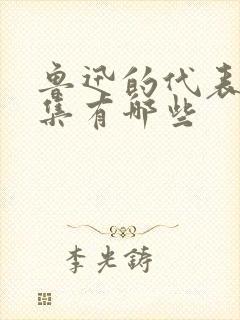 鲁迅的代表
集有哪些
李光鋳